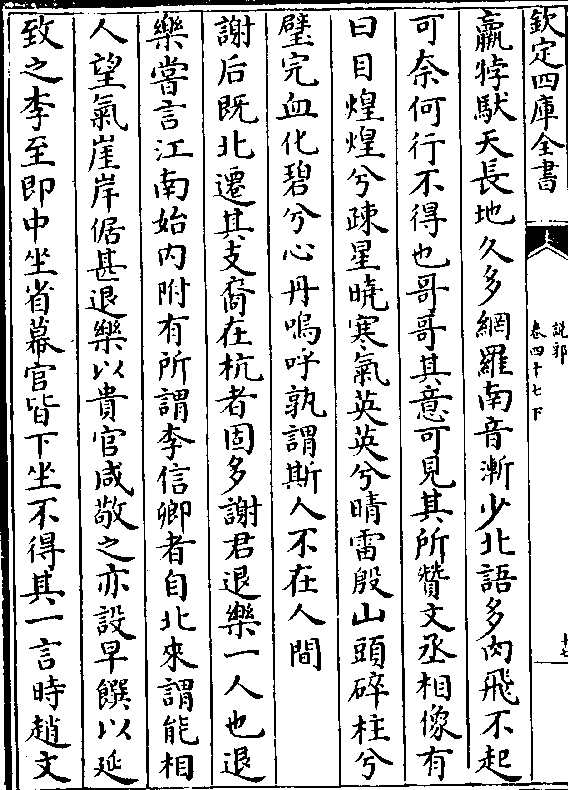 欽定四庫全書
說郛
卷四十七下
十七
羸牸馱天長地久多網羅南音漸少北語多肉飛不起
可奈何行不得也哥哥其意可見其所贊文丞相像有
曰目煌煌兮疎星曉寒氣英英兮晴雷殷山頭碎柱兮
璧完血化碧兮心丹嗚呼孰謂斯人不在人間
謝后既北遷其支裔在杭者固多謝君退樂一人也退
樂嘗言江南始内附有所謂李信卿者自北來謂能相
人望氣崖岸倨甚退樂以貴官咸敬之亦設早饌以延
致之李至即中坐省幕官皆下坐不得其一言時趙文